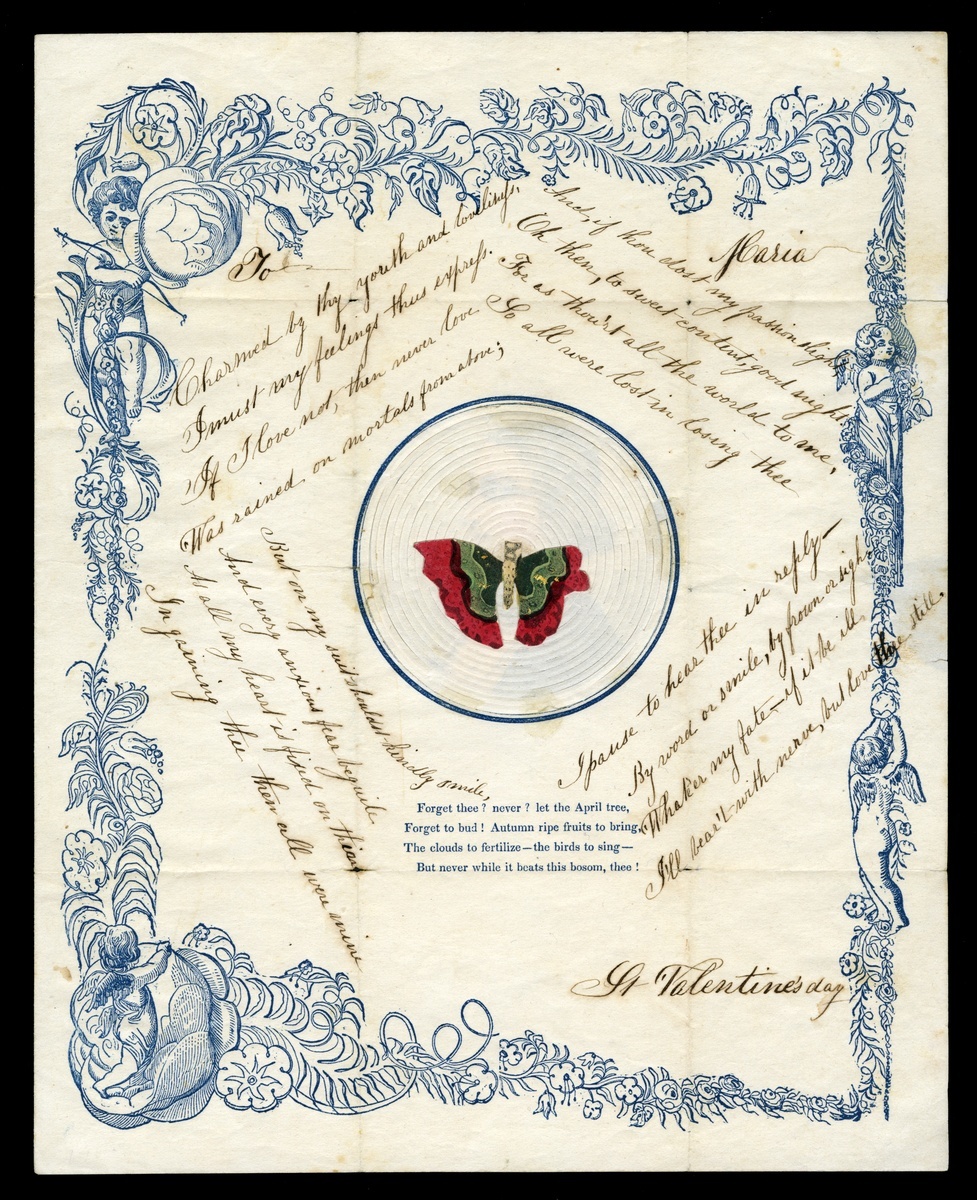 To
Maria
Charmed by thy youth and loveliness,
I must my feelings thus express.
If I love not, then never love
Was rained on mortals from above;
And, if thou dost my passion slight
Oh then, to sweet content, good night
For as thou'rt all the world to me,
So all were lost in losing thee
But on my suit shouldst kindly smile,
And every anxious fear beguile
As all my heart is fixed on thine
In gaining thee then all were mine
I pause to hear thee in reply—
By word or smile, by frown or sigh
Whate'er my fate—if it be ill
I'll bear't with nerve, but love thee still.
Forget thee? never? let the April tree,
Forget to bud! Autumn ripe fruits to bring,
The clouds to fertilize—the birds to sing—
But never while it beats this bosom, thee!
St Valentine's day